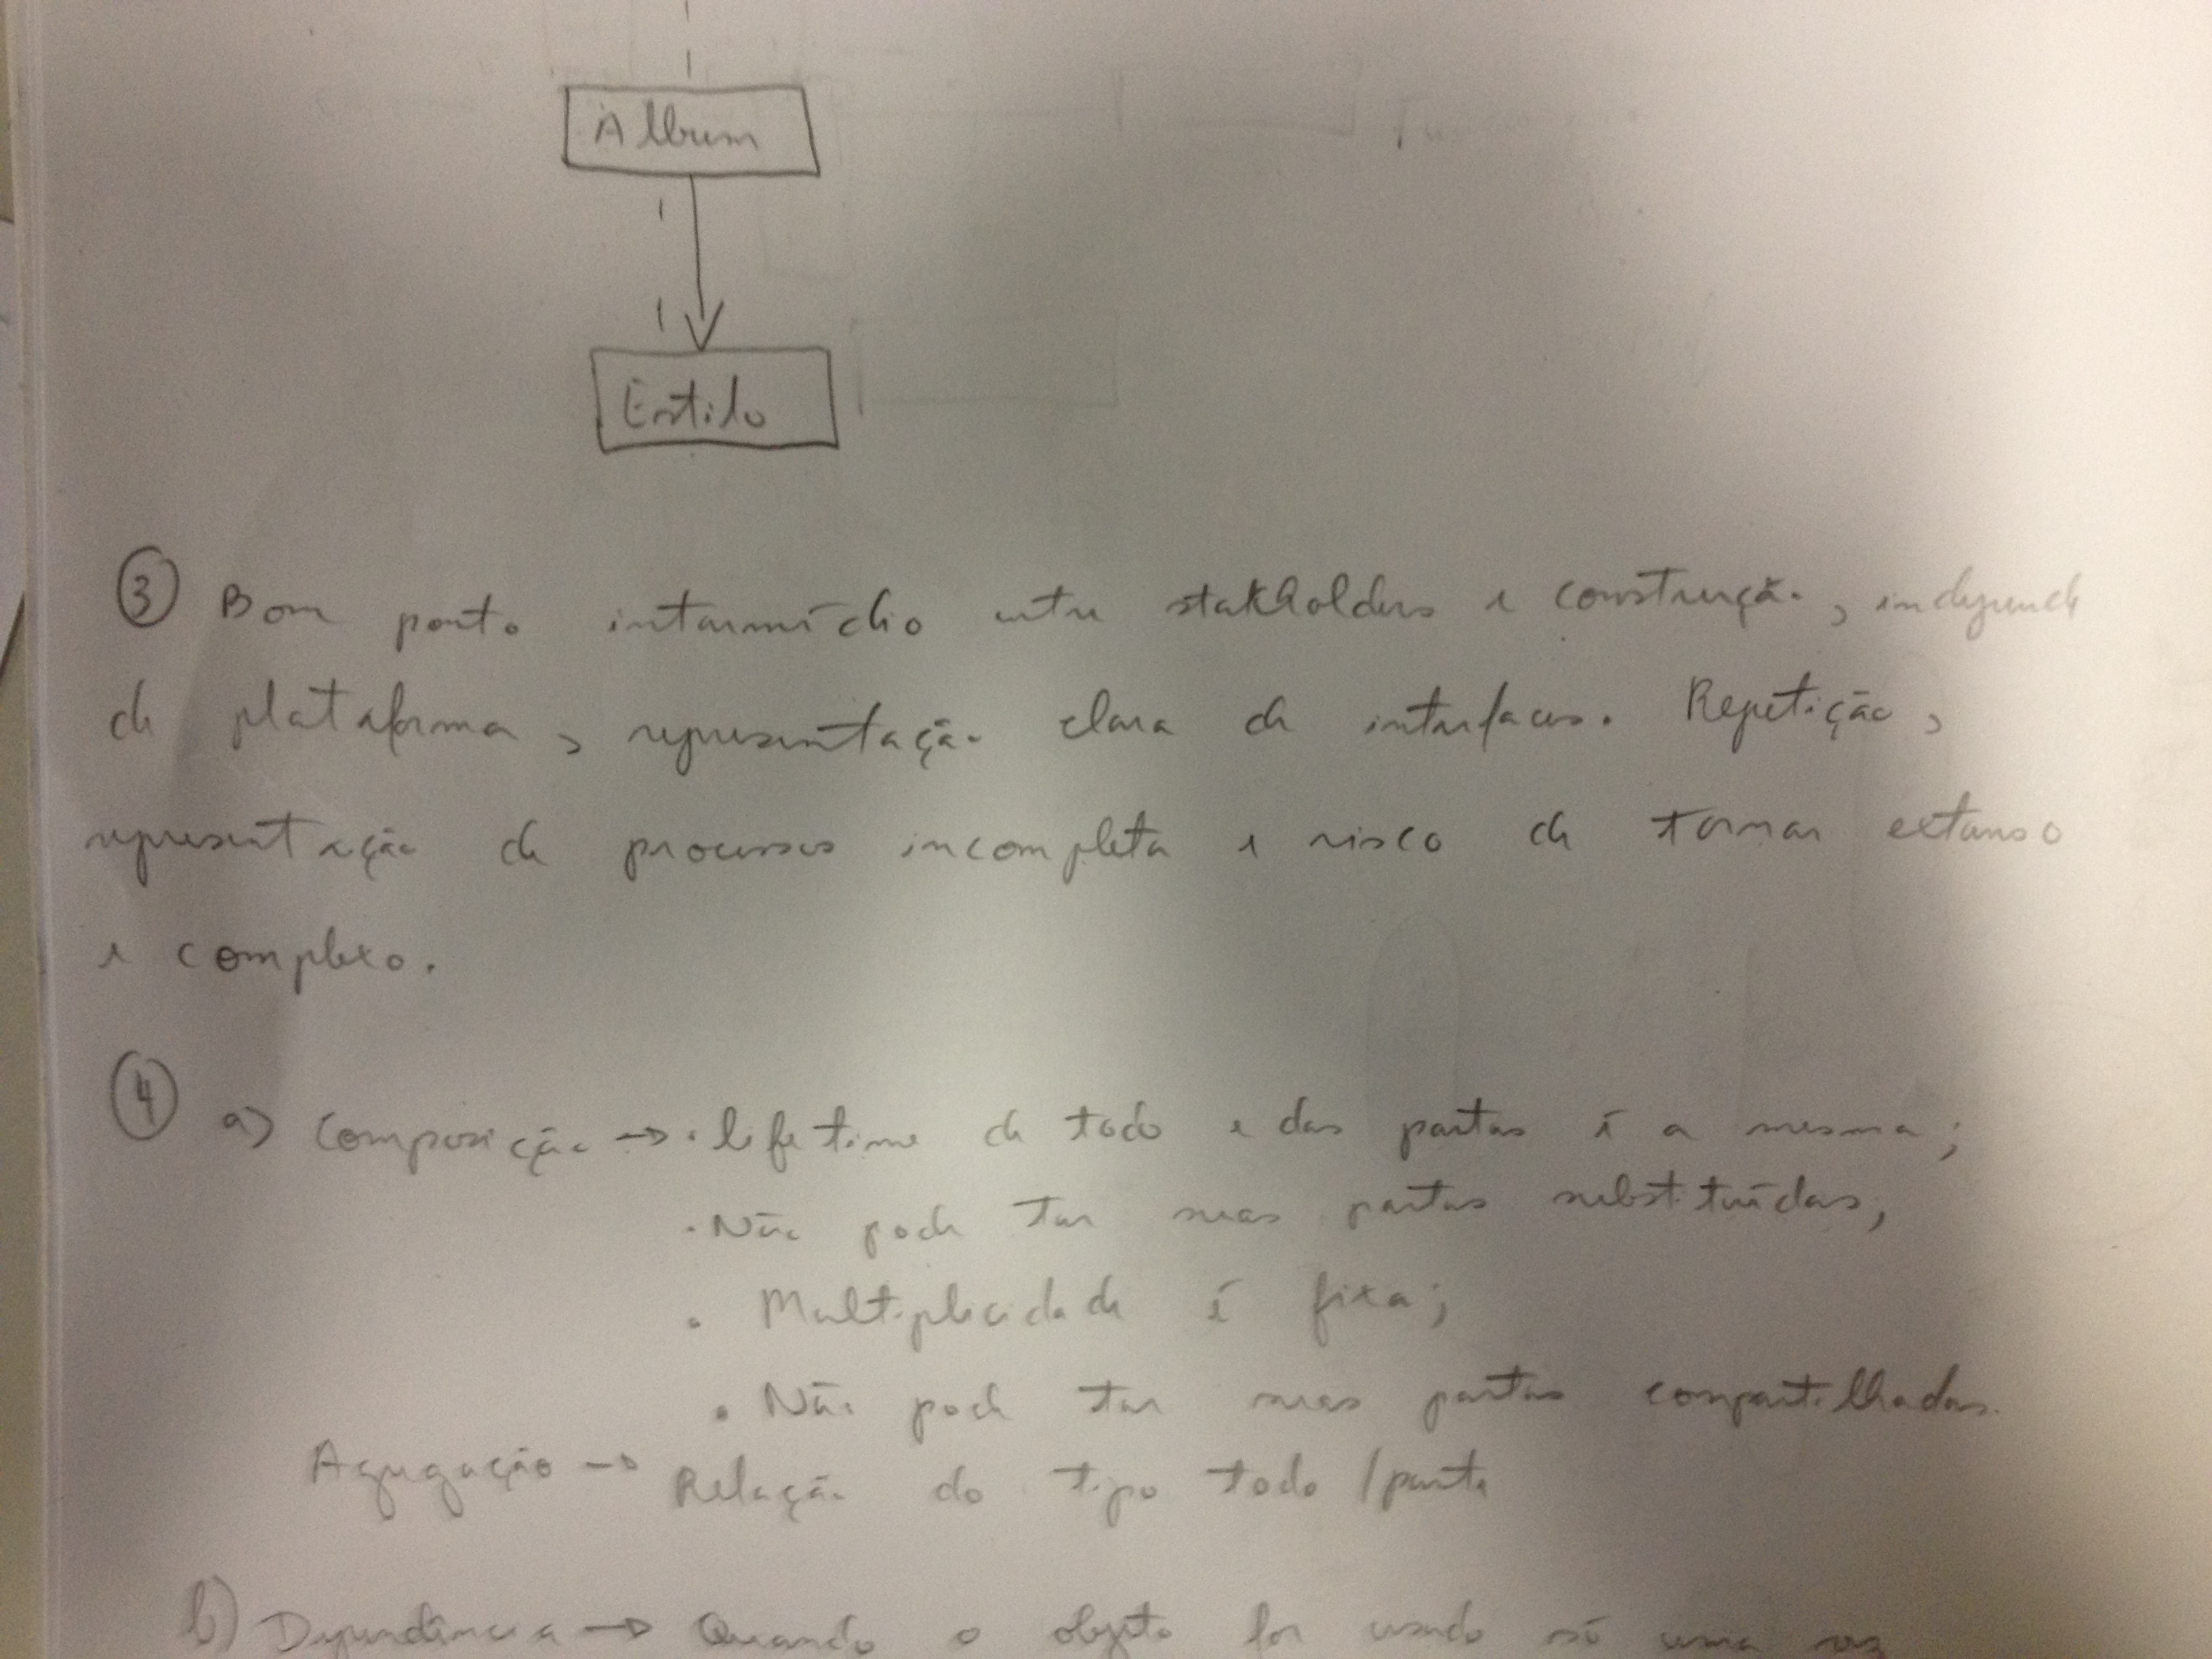 Álbum
Estilo
③ Bom ponto intermédio entre stakholders e construção, independe
de plataforma, representação clara de interfaces. Repetição,
representação de processos incompleta e risco de tornar extenso
e complexo.
④ a) Composição → • lifetime de todo e das partes é a mesma;
• Não pode ter suas partes substituídas;
• Multiplicidade é fixa;
• Não pode ter suas partes compartilhadas.
Agregação → Relação do tipo todo/parte
b) Dependência → Quando o objeto for usado só uma vez